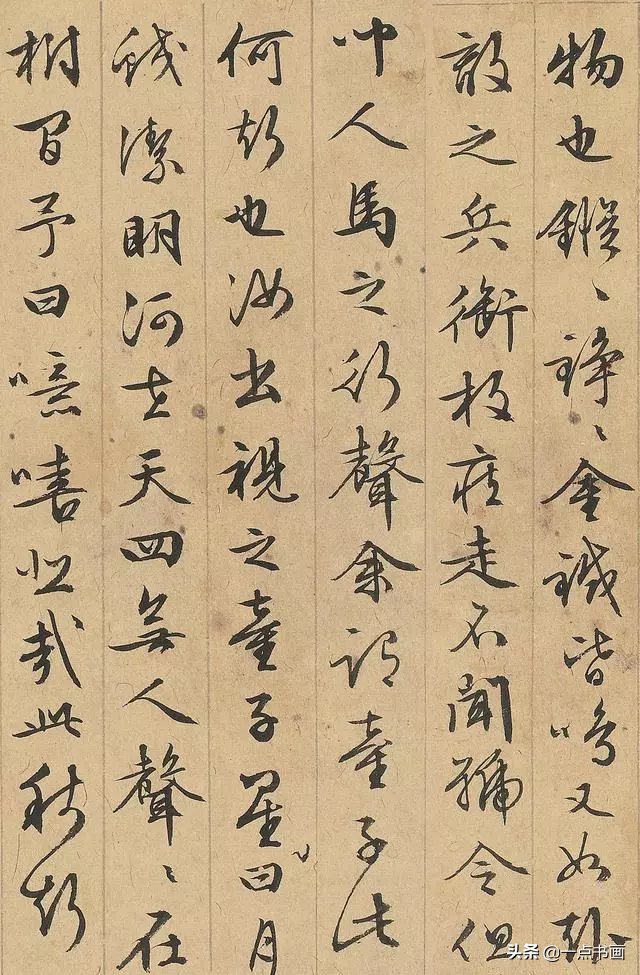 物也鏦〻錚〻金鐵皆鳴又如赴
敵之兵銜枚疾走不聞號令但
聞人馬之行聲余謂童子此
何聲也汝出視之童子星曰月
皎潔明河在天四無人聲〻在
樹間予曰噫嘻悲哉此秋聲
头条 @一点书画